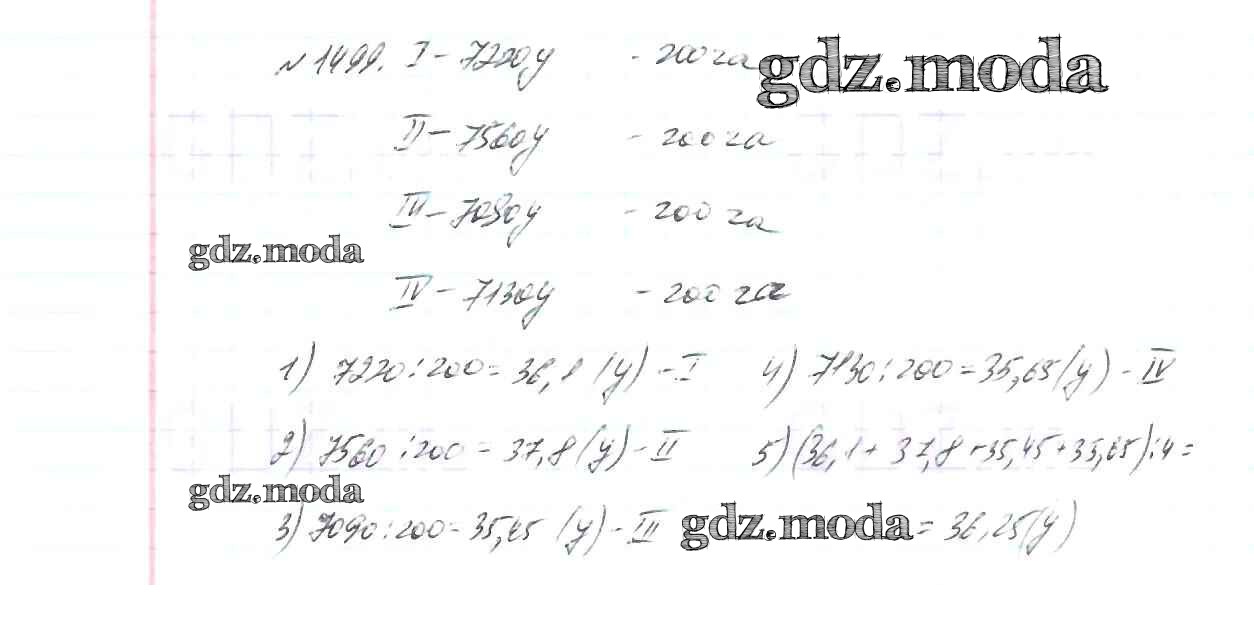 №1499. I - 7220ц - 200 га gdz.moda
II - 7560ц - 200 га
III - 7090ц - 200 га
gdz.moda
IV - 7130ц - 200 га
1) 7220:200=36,1 (ц) - I 4) 7130:200=35,65(ц) - IV
2) 7560:200=37,8(ц) - II 5) (36,1+37,8+35,45+35,65):4=
gdz.moda
3) 7090:200=35,45 (ц) - III gdz.moda = 36,25(ц)